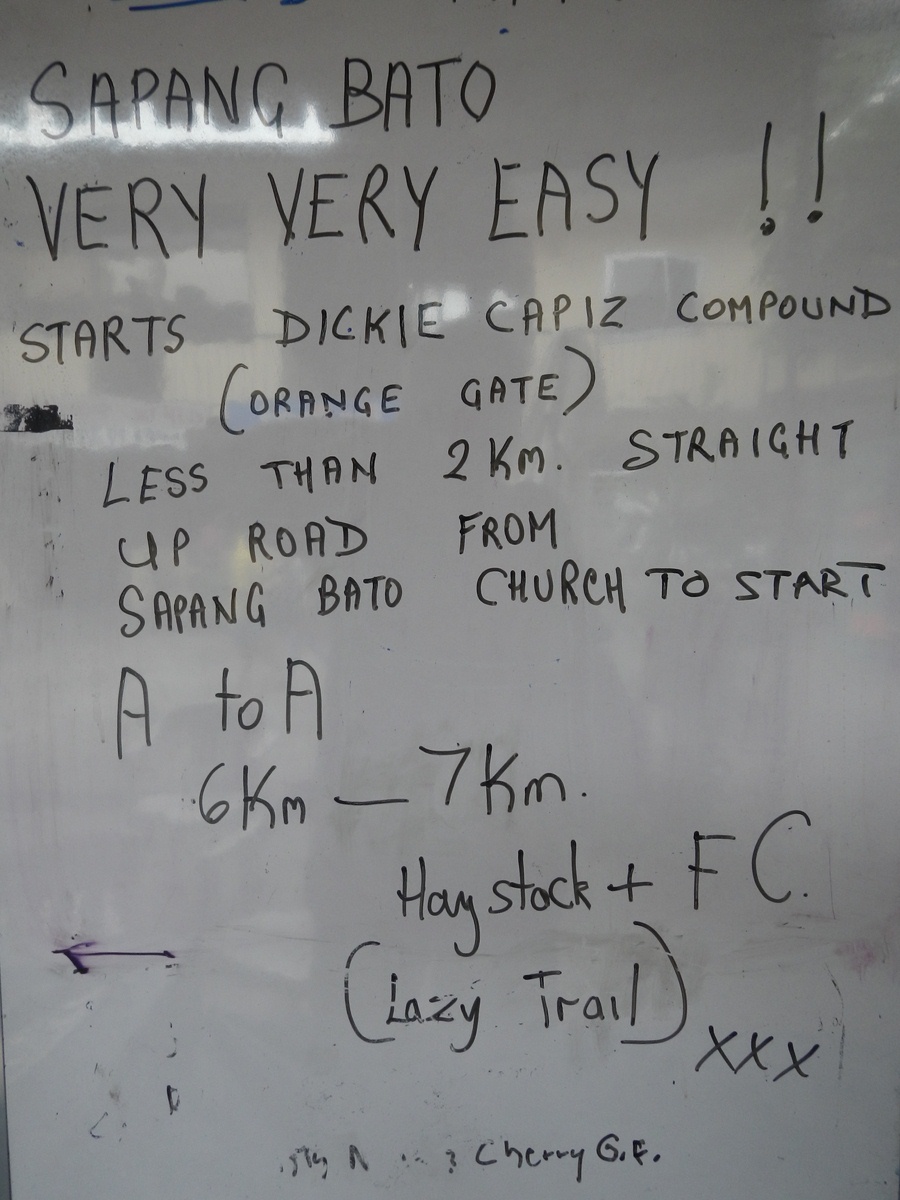 SAPANG BATO
VERY VERY EASY !!
STARTS DICKIE CAPIZ COMPOUND
(ORANGE GATE)
LESS THAN 2 Km. STRAIGHT
UP ROAD FROM
SAPANG BATO CHURCH TO START
A to A
6Km — 7Km.
Haystack + FC.
(Lazy Trail)
xxx
Cherry G.F.